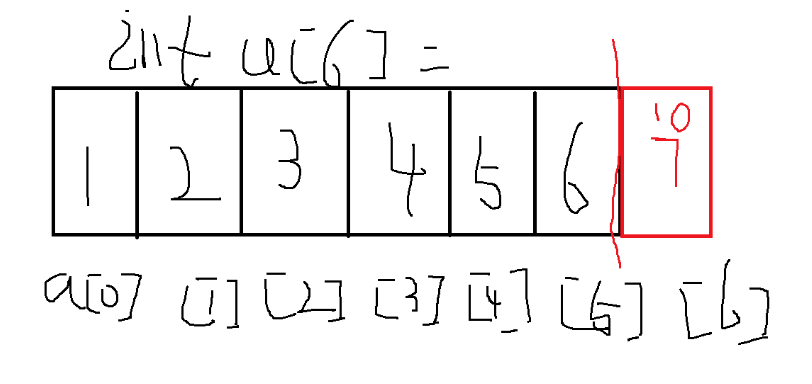 int a[6] =
1 2 3 4 5 6 10
7
a[0] [1] [2] [3] [4] [5] [6]